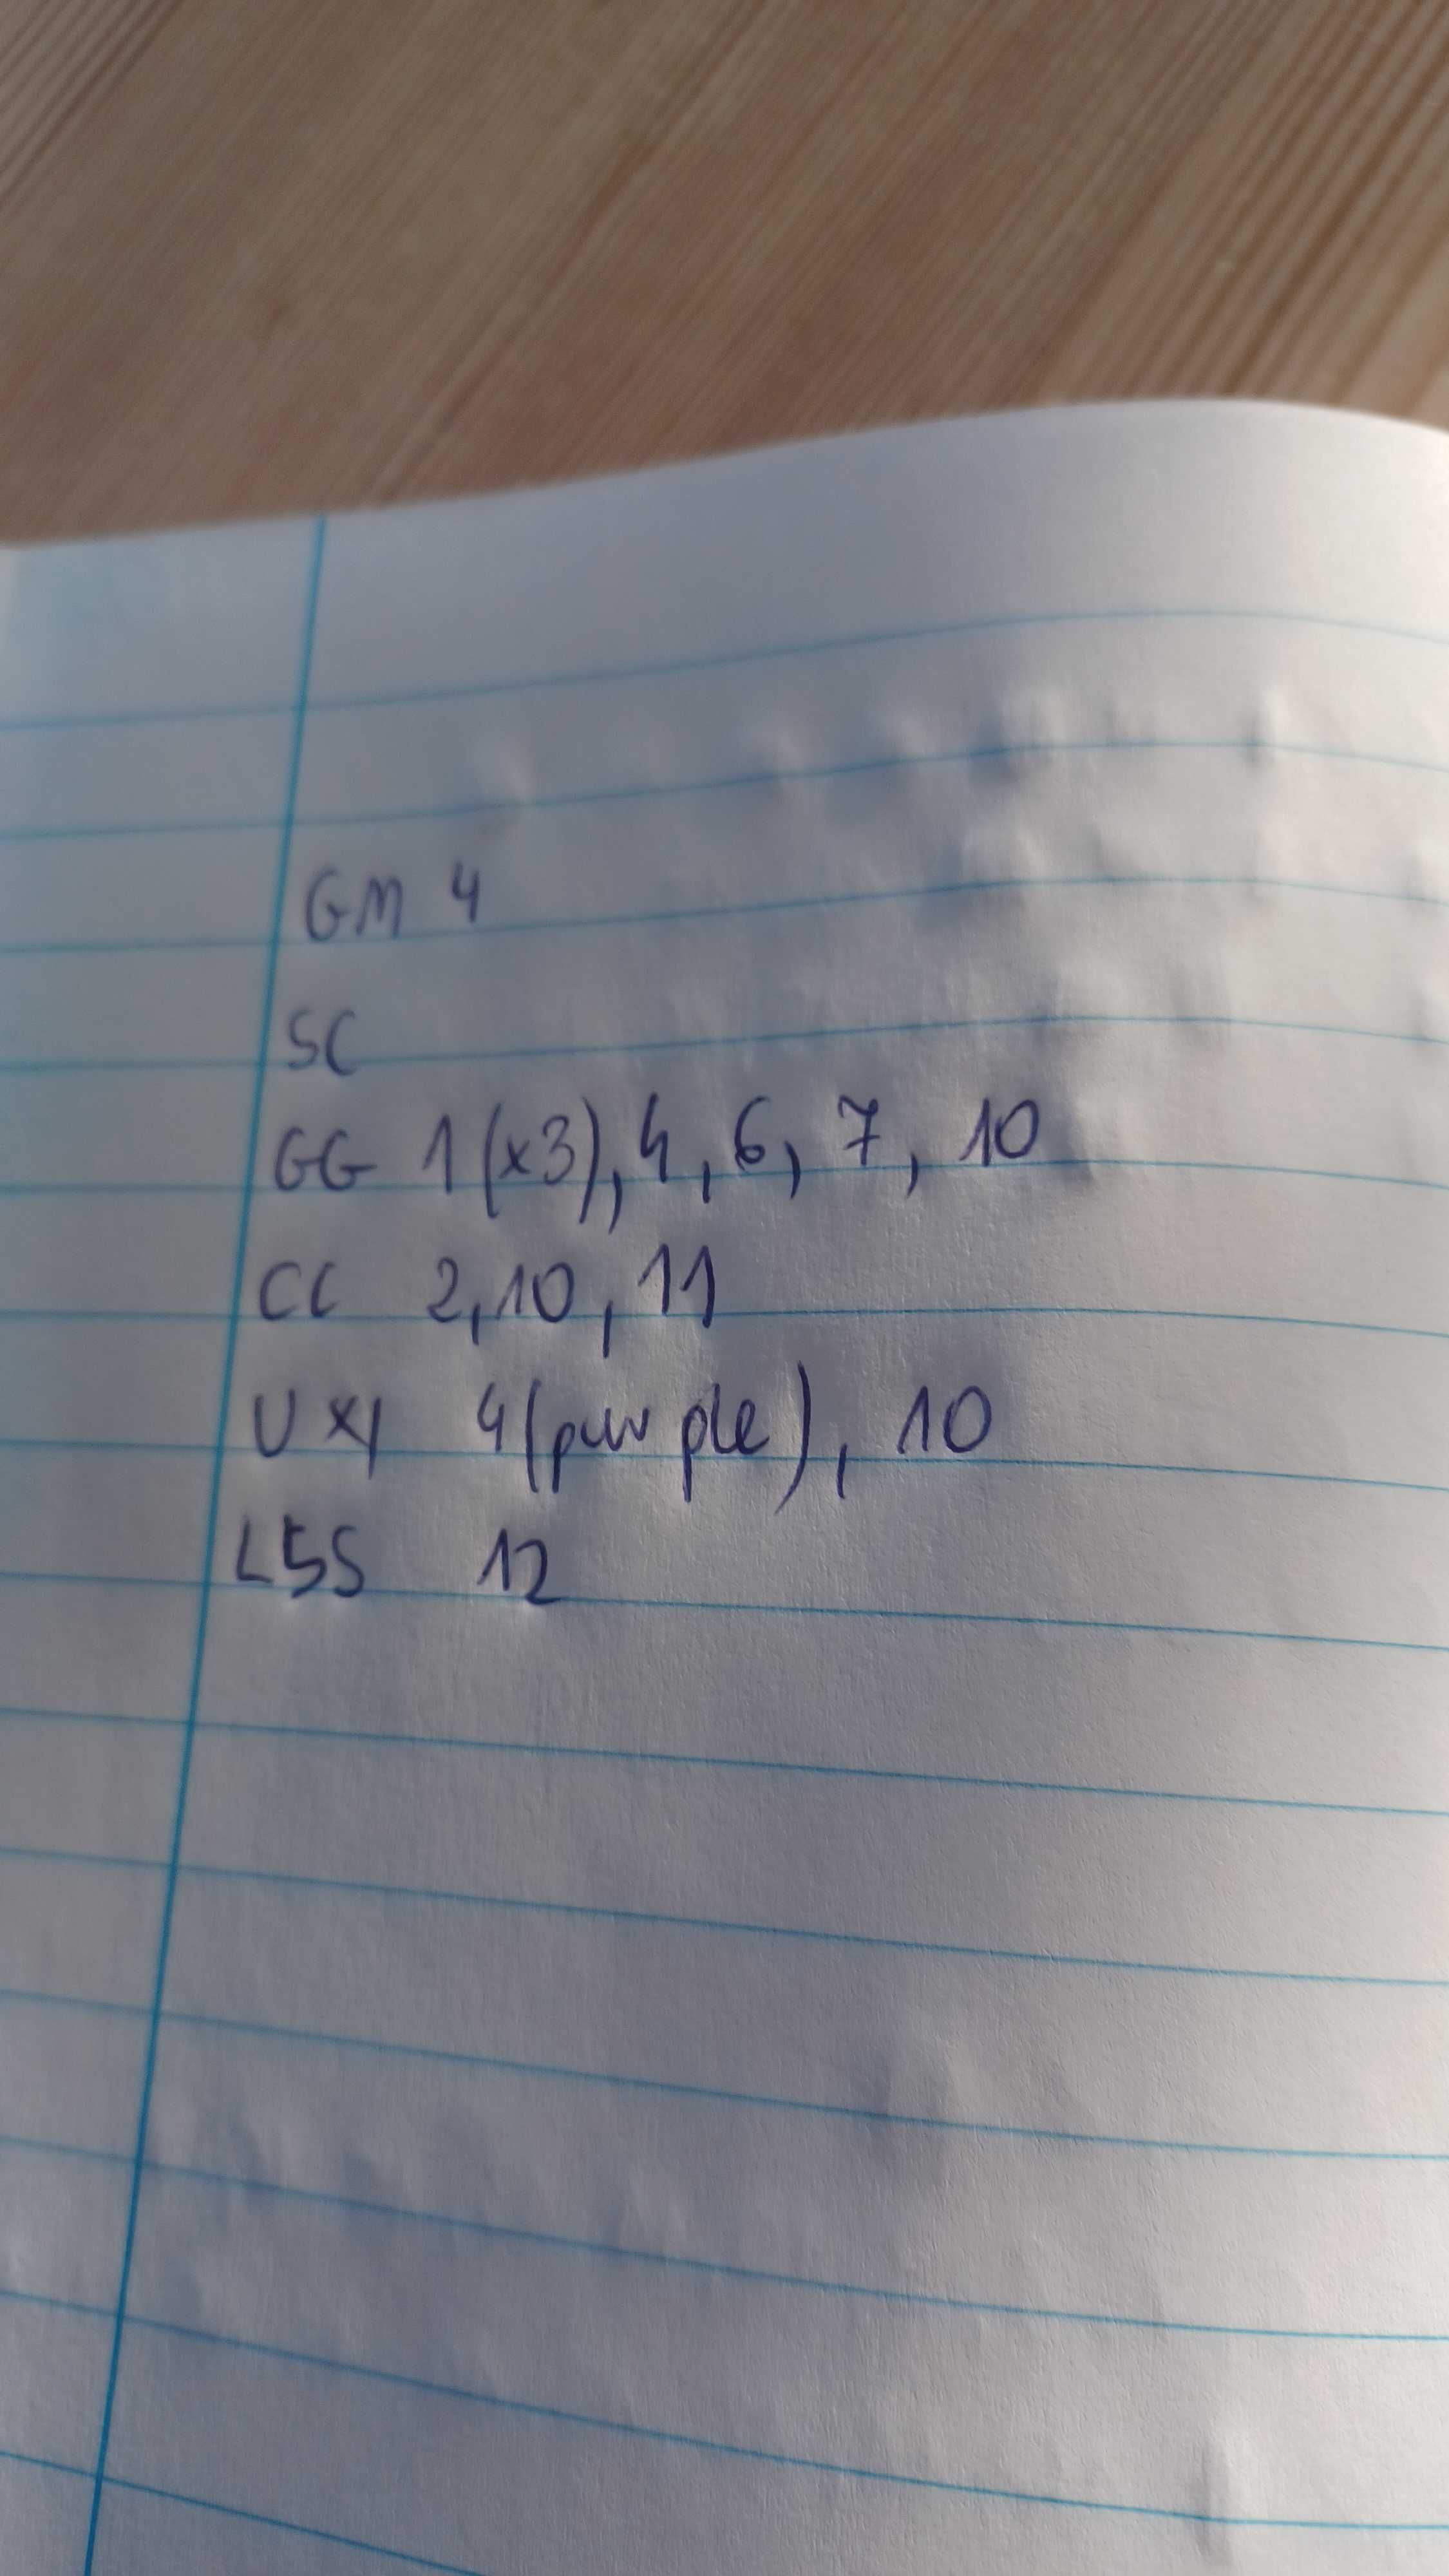 GM 4
SC
GG 1(x3), 4, 6, 7, 10
CC 2, 10, 11
UXI 4(purple), 10
LSS 12